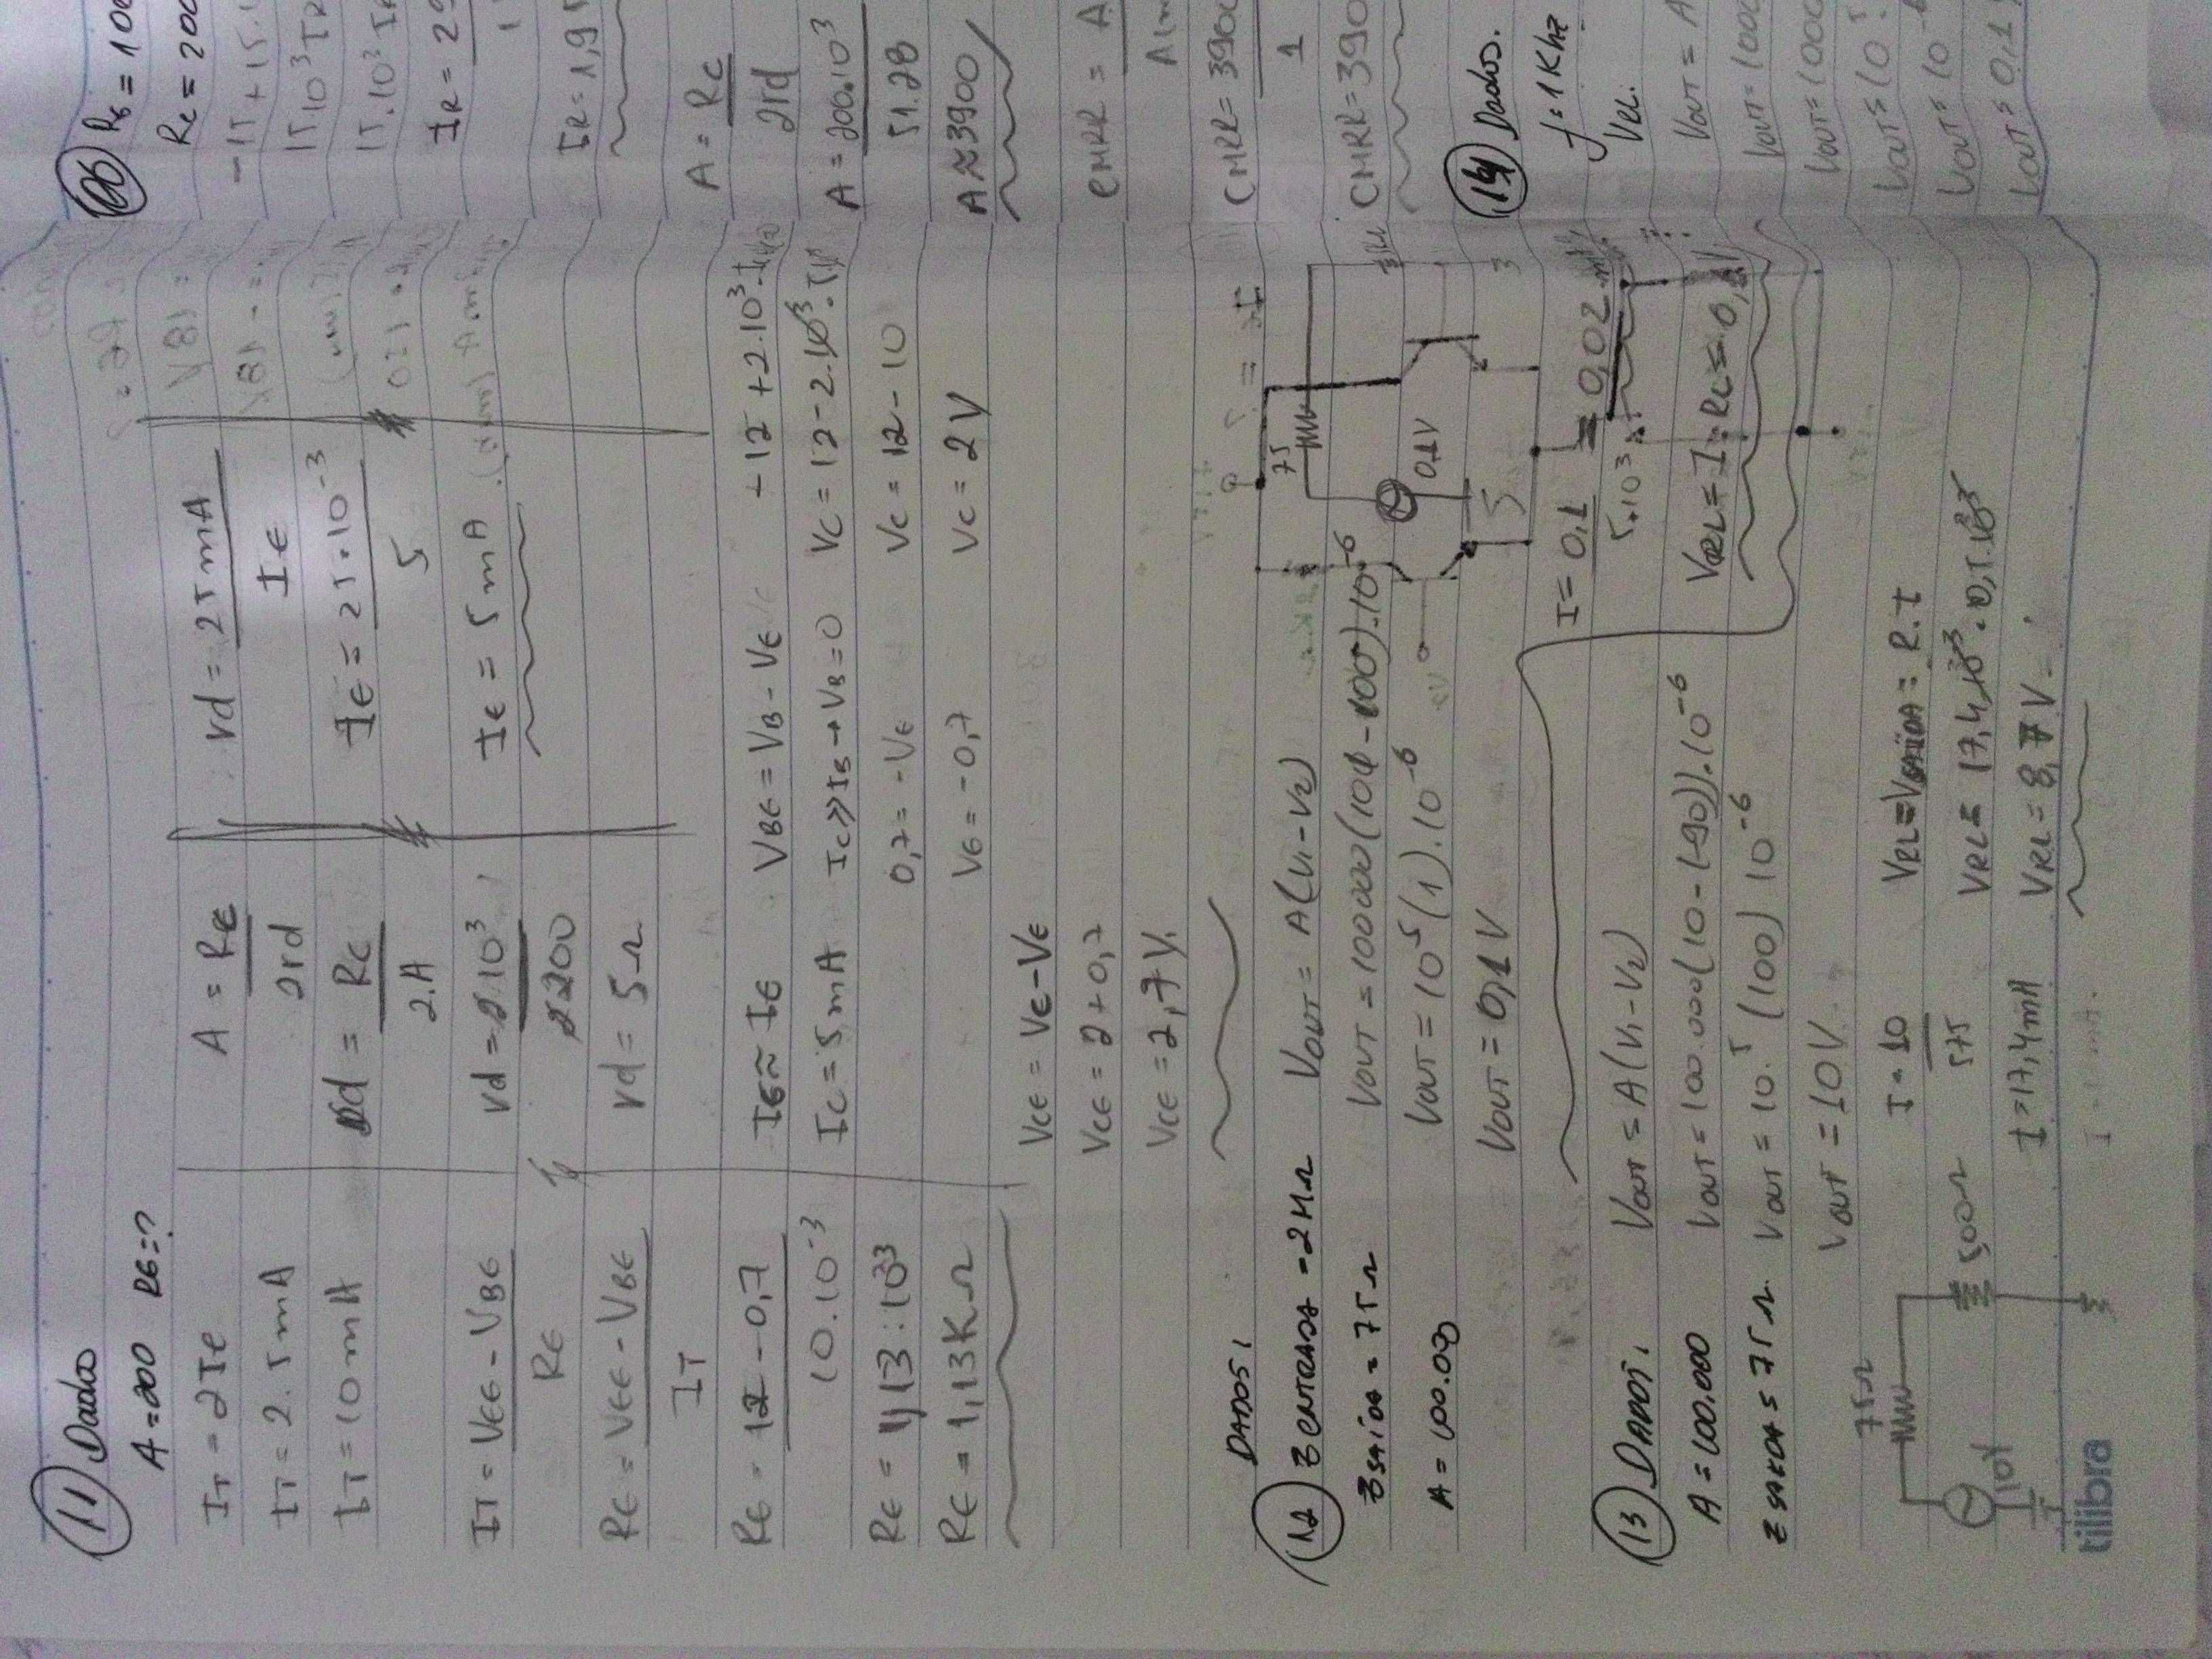 11 Dados
A=200 RE=?
IT = 2IE
IT = 2.5mA
IT = 10mA
IT = VEE - VBE
RE
RE = VEE - VBE
IT
RE = 12 - 0,7
10.10⁻³
RE = 1,13.10³
RE = 1,13KΩ
A = RC
2rd
rd = RC
2.A
rd = 2.10³
2.200
rd = 5Ω
rd = 25mA
IE
IE = 25.10⁻³
5
IE = 5mA
IE ≈ IE
IC = 5mA
VBE = VB - VE
IC >> IB → VB = 0
0,7 = -VE
VE = -0,7
-12 + 2.10³
VC = 12 - 2.10³.5
VC = 12 - 10
VC = 2V
VCE = VC - VE
VCE = 2 + 0,7
VCE = 2,7V
DADOS
12 Z ENTRADA = 2MΩ
Z SAÍDA = 75Ω
A = 100.000
VOUT = A(V1 - V2)
VOUT = 100000(101 - 100).10⁻⁶
VOUT = 10⁵(1).10⁻⁶
VOUT = 0,1V
75
0,1V
I = 0,1 = 0,02
5.10³
VRL = I.RL = 0,1V
13 DADOS
A = 100.000
Z SAÍDA = 75Ω
VOUT = A(V1 - V2)
VOUT = 100.000(10 - (-90)).10⁻⁶
VOUT = 10⁵(100) 10⁻⁶
VOUT = 10V
75Ω
10V
500Ω
I = 10
575
I = 17,4mA
VRL = VSAÍDA = R.I
VRL = 17,4.10⁻³.0,5.10³
VRL = 8,7V
tilibra
06
RC = 200
A = RC
2rd
A = 200.10³
51.28
A ≈ 3900
CMRR = A
CMRR = 3900
1
CMRR = 390
14 Dados.
f = 1Khz
VPL.
VOUT = A
VOUT = 1000
VOUT = 1000
VOUT = 10⁵
VOUT = 10
VOUT = 0,1